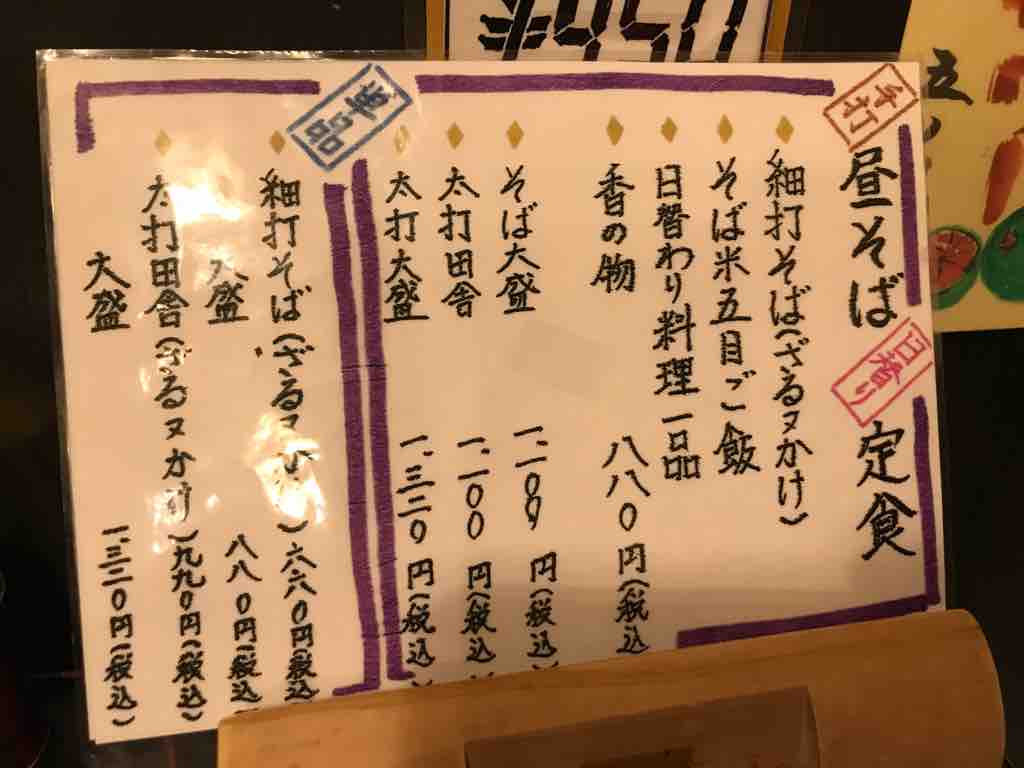 手打
昼そば
日替り
定食
細打そば(ざるヌかけ)
そば米五目ご飯
日替わり料理一品
香の物 八八〇円(税込
そば大盛 一、一〇〇円(税込
太打田舎 一、一〇〇円(税込
太打大盛 一、三二〇円(税込)
単品
細打そば(ざるヌかけ)六六〇円(税込
大盛 八八〇円(税込
太打田舎(ざるヌかけ)九九〇円(税込)
大盛 一、三二〇円(税込)